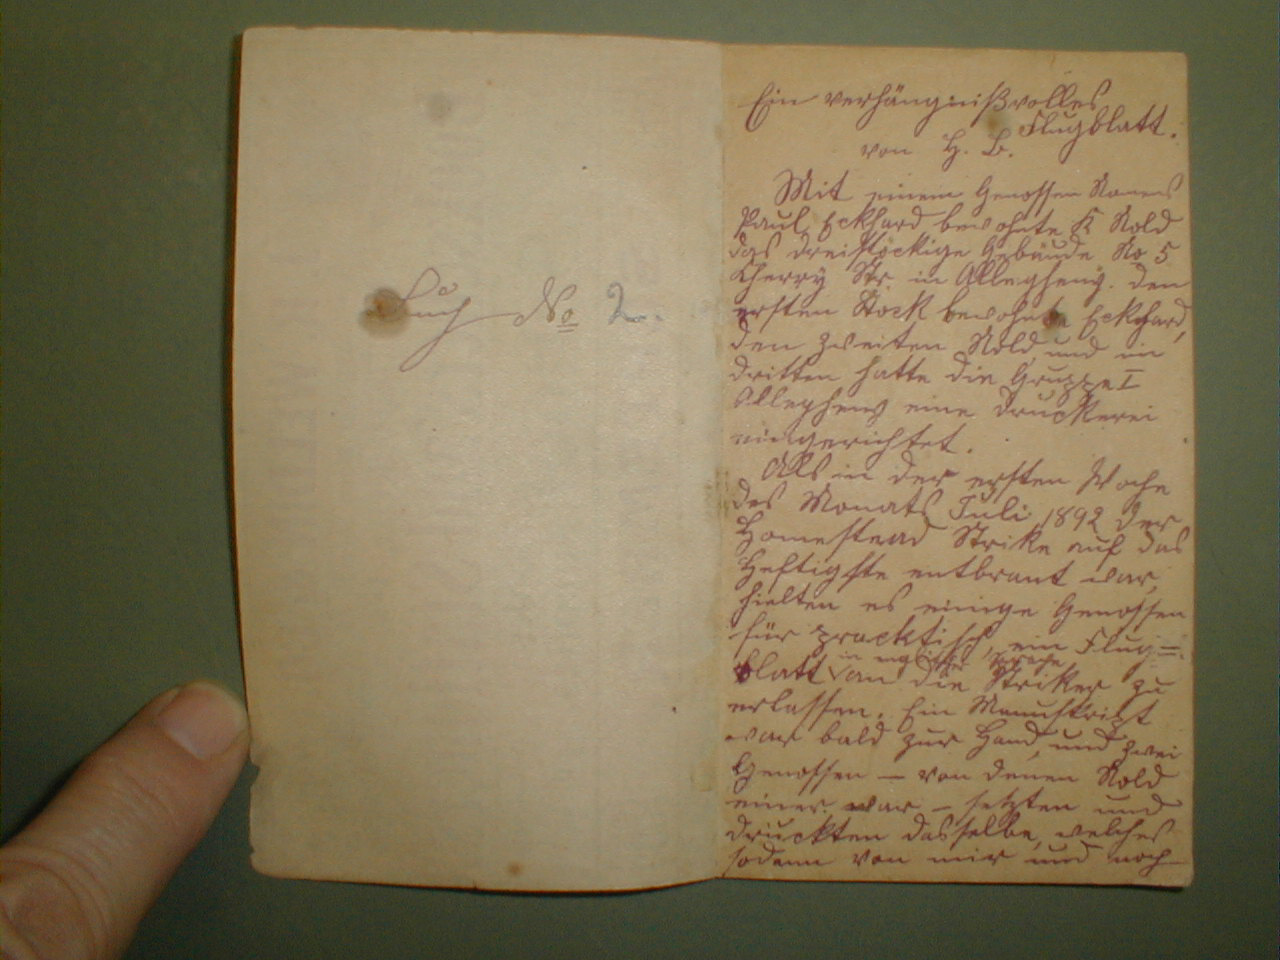 Buch No 2.
Ein verhängnißvolles
Flugblatt.
von H. B.
Mit einem Genossen Namens
Paul Eckhard bewohnte K Nold
das dreistöckige Gebäude No 5
Cherry Str. in Allegheny. Den
ersten Stock bewohnte Eckhard,
den zweiten Nold, und im
dritten hatte die Gruppe I
Allegheny eine Druckerei
eingerichtet.
Als in der ersten Woche
des Monats Juli 1892 der
Homestead Strike auf das
Heftigste entbrant war,
hielten es einige Genossen
für pracktisch, ein Flug=
in englischer Sprache
blatt an die Striker zu
erlassen. Ein Manuskript
war bald zur Hand, und zwei
Genossen — von denen Nold
einer war — setzten und
druckten dasselbe, welches
sodann von mir und noch